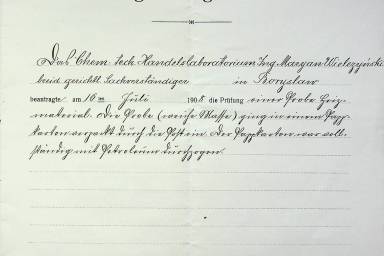 Das Chem. tech. Handelslaboratorium Ing. Maryan Wieleżyński
beeid. gerichtl. Sachverständiger in Boryslaw
beantragte am 16ten Juli 1908 die Prüfung einer Probe Heiz-
material. Die Probe (weiche Masse) ging in einem Papp-
karton verpackt durch die Post ein. Der Pappkarton war voll-
ständig mit Petroleum durchzogen.